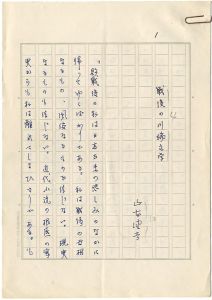 1
戦後の川端文学
「敗戦後の私は日本古来の悲しみのなかに
帰ってゆくばかりである。私は戦後の世相
なるもの、風俗なるものを信じない。現実
なるものも信じない。近代小説の根底の写
実からも私は離れてしまひさうである。も